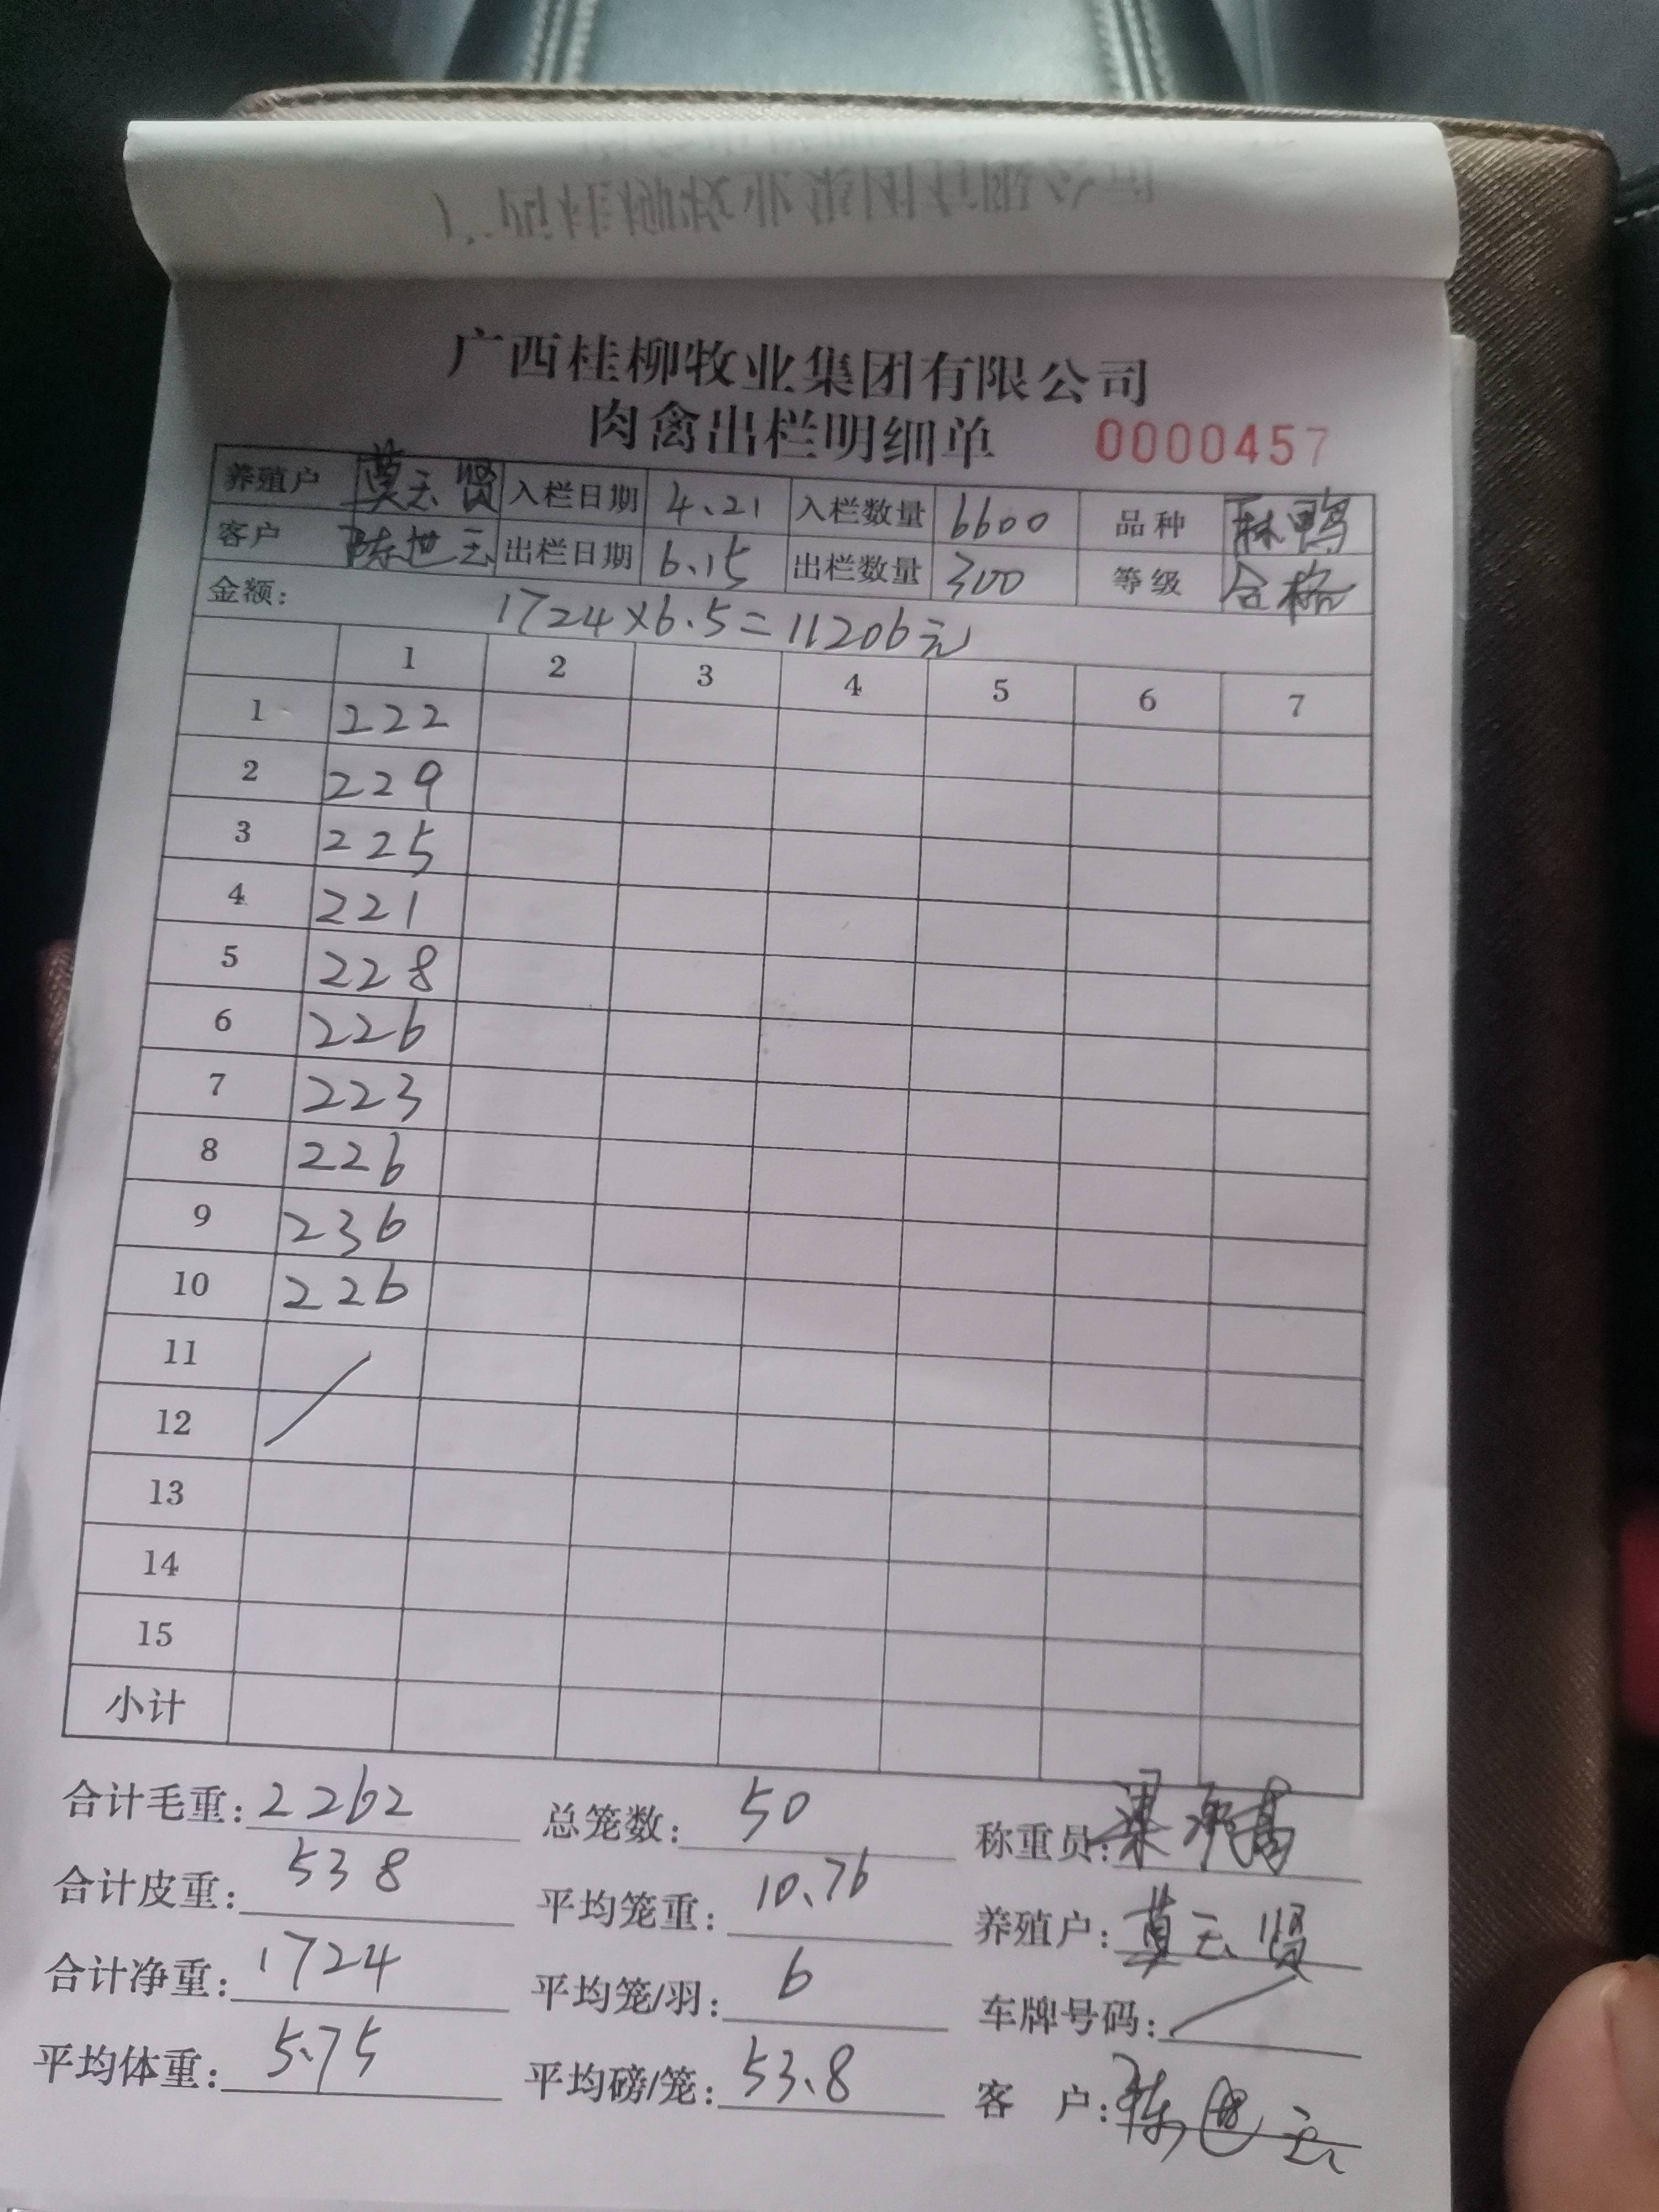 广西桂柳牧业集团有限公司
肉禽出栏明细单 0000457
养殖户 莫云贤 入栏日期 4.21 入栏数量 6600 品种 麻鸭
客户 陈世云 出栏日期 6.15 出栏数量 300 等级 合格
金额: 1724×6.5=11206元
1 2 3 4 5 6 7
1 222
2 229
3 225
4 221
5 228
6 226
7 223
8 226
9 236
10 226
11
12
13
14
15
小计
合计毛重: 2262 总笼数: 50 称重员: 梁
合计皮重: 538 平均笼重: 10.76 养殖户: 莫云贤
合计净重: 1724 平均笼/羽: 6 车牌号码:
平均体重: 5.75 平均磅/笼: 53.8 客 户: 陈世云